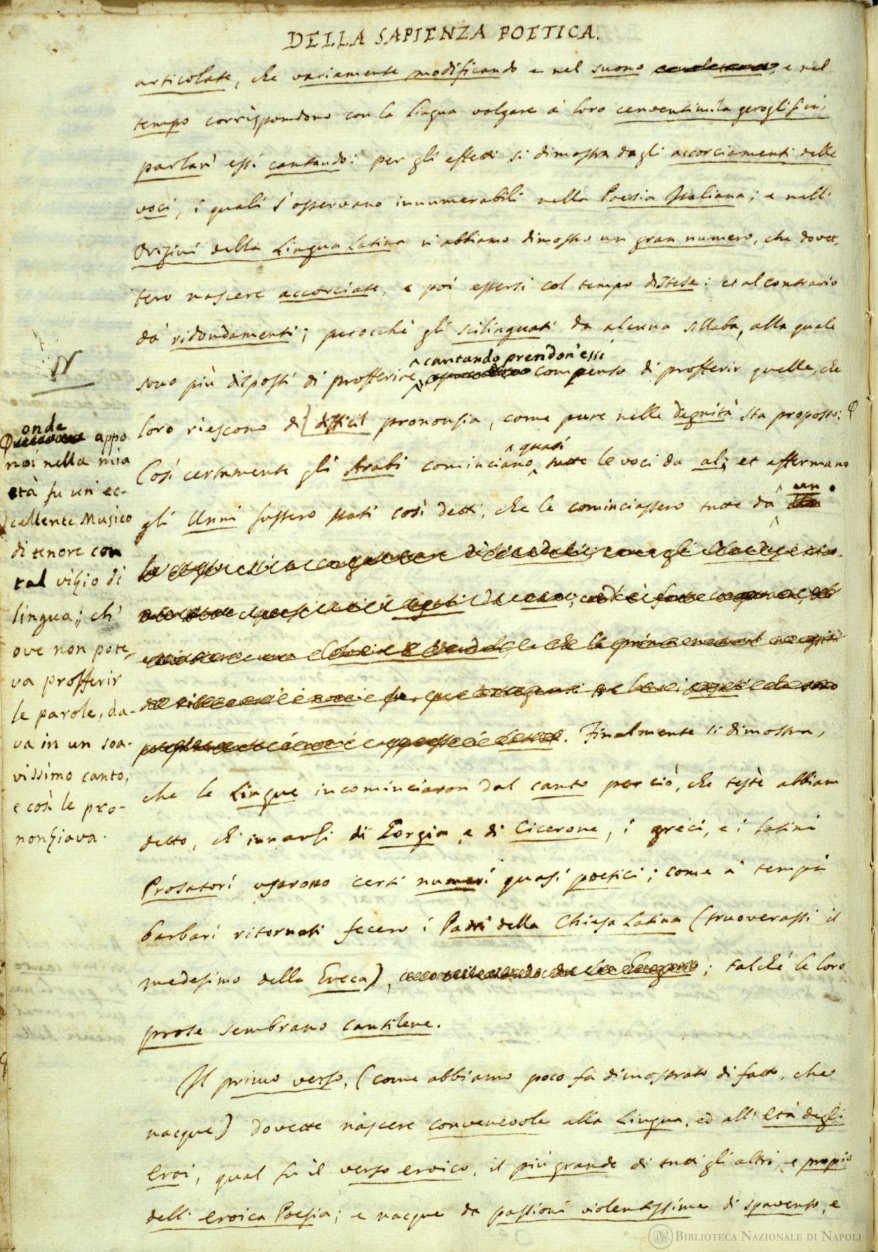 DELLA SAPIENZA POETICA.
articolate, che variamente modificando e nel suono e nel
tempo corrispondono con la lingua volgare a' loro cenventimila geroglifici,
parlari essi cantando: per gli effetti si dimostra dagli accorciamenti delle
voci, i quali s'osservano innumerabili nella Poesia Italiana; e nell'
Origini della Lingua Latina n'abbiamo dimostro un gran numero, che dovet-
tero nascere accorciate, e poi essersi col tempo distese: et al contrario
da' ridondamenti; perocchè gli scilinguati da alcuna sillaba, alla quale
cantando prendon'essi
sono più disposti di profferire compenso di profferir quelle, che
loro riescono di difficil pronounzia, come pure nelle degnità sta proposto:
quasi
Così certamente gli Arabi cominciano tutte le voci da al; et affermano
un
gli Unni fussero stati così detti, che le cominciassero tutte da
Finalmente si dimostra,
che le Lingue incominciaron dal canto per ciò, che testè abbiam
detto, ch'innanzi di Gorgia, e di Cicerone, i greci, e i latini
Prosatori usarono certi numeri quasi poetici; come a' tempi
barbari ritornati fecero i Padri della Chiesa Latina (truoverassi il
medesimo della Greca), ; talchè le loro
prose sembrano cantilene.
Il primo verso, (come abbiamo poco fa dimostrato di fatto, che
nacque) dovette nascere convenevole alla Lingua, ed all'età degli
Eroi, qual fu il verso eroico, il più grande di tutti gli altri, e propio
dell'eroica Poesia; e nacque da passioni violentissime di spavento, e
onde
appo
noi nella mia
età fu un'ec-
cellente Musico
di tenore con
tal vizio di
lingua; ch'
ove non pote-
va profferir
le parole, da-
va in un soa-
vissimo canto,
e così le pro-
nonziava.
BIBLIOTECA NAZIONALE DI NAPOLI